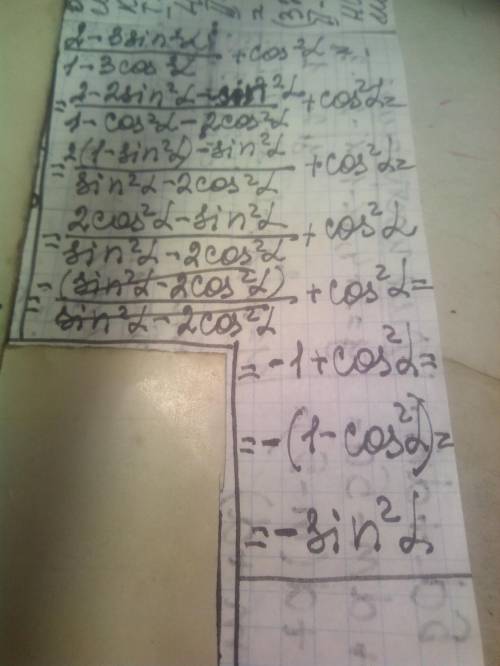 (2-3sin²α)/(1-3cos²α) + cos²α =
= (2-2sin²α-sin²α)/(1-cos²α-2cos²α) + cos²α =
= (2(1-sin²α)-sin²α)/(sin²α-2cos²α) + cos²α =
= (2cos²α-sin²α)/(sin²α-2cos²α) + cos²α
= -(sin²α-2cos²α)/(sin²α-2cos²α) + cos²α =
= -1+cos²α =
= -(1-cos²α) =
= -sin²α